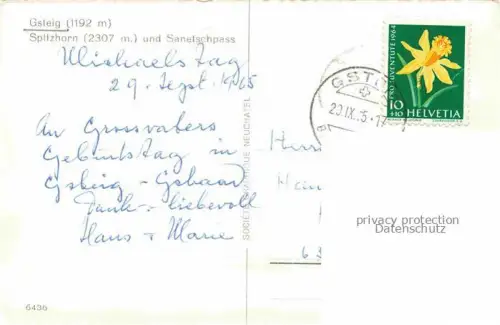 Gsteig (1192 m)
Spitzhorn (2307 m.) und Sanetschpass
Michaels Tag
29. Sept. 1965
An Grossvaters
Geburtstag in
Gsteig - Gstaad
Dank - liebevoll
Hans + Marie
6436
SOCIÉTÉ GRAPHIQUE NEUCHATEL
GSTAAD
29.IX.65-17
PRO JUVENTUTE 1964
10
+10
HELVETIA
Herrn
Hein
privacy protection
Datenschutz